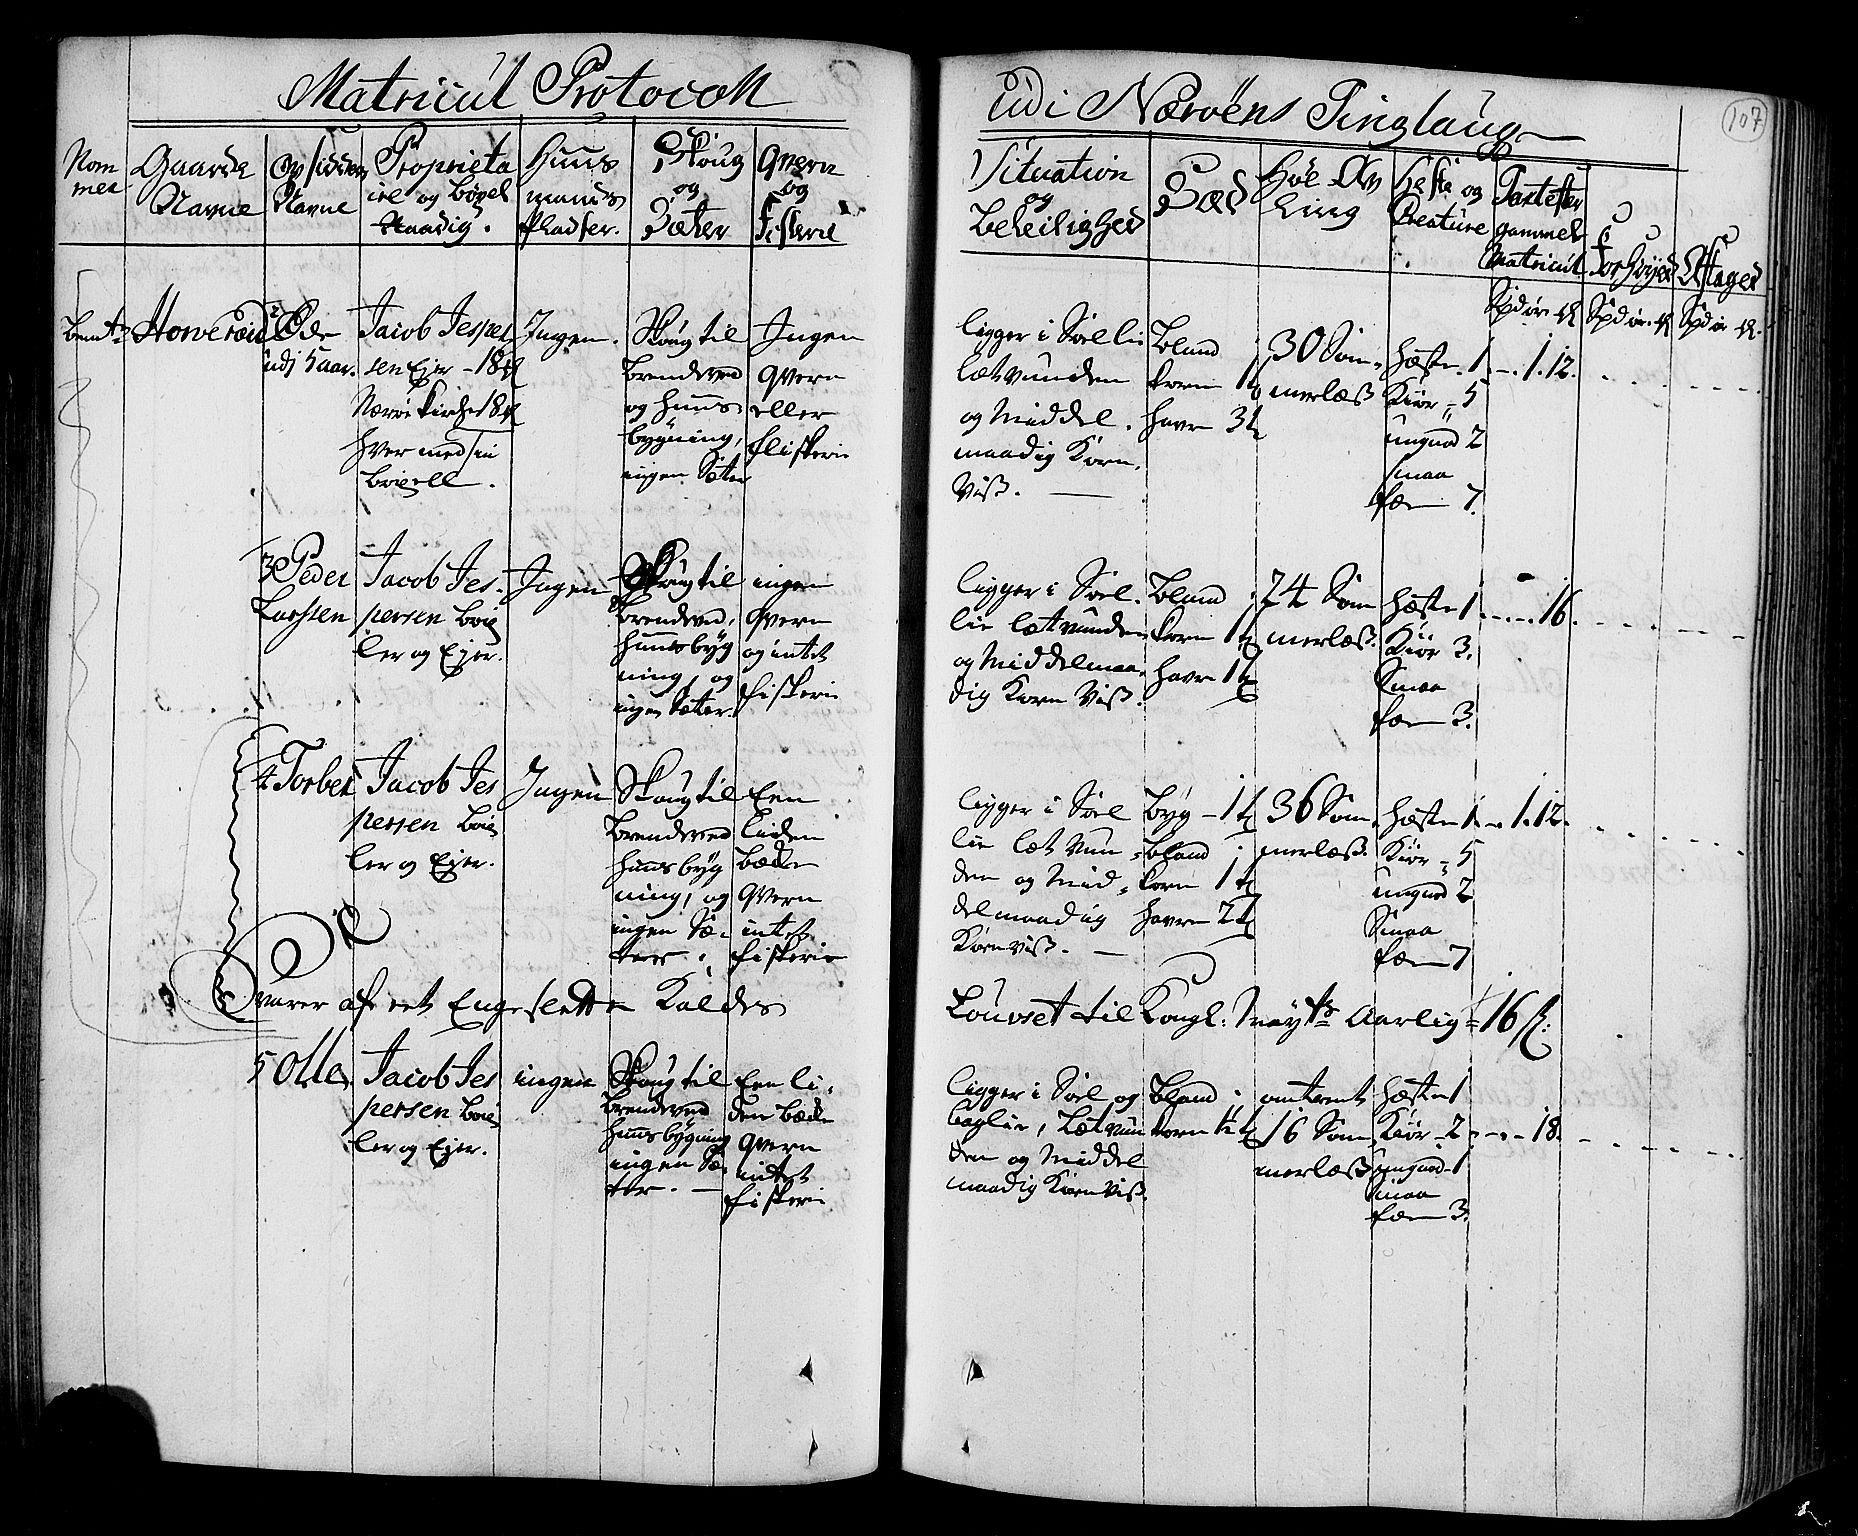 Matricul Protocoll
Udi Nærøens Tinglaug
107
Nom
mer
Gaarde
Navne
Opsidder
Navne
Proprieta
riel og bøxel
Raadig.
Huus
mands
Pladser.
Skoug
og
Sæter
Qvern
og
Fiskerie
Situation
og
Beleilighed
Sæd
Høe Av
ling
Heste og
Creature
Taxt efter
gammel
Matricul
Forhøyed
Aftaged
Spdr. ort. ß
Spd. ort. ß
Spd. ort. ß
2 Øde
udj 5 aar.
Jacob Jesper
sen Ejer - 18 ß
Nærøe Kirche 18 ß
hver med sin
bøxell.
Ingen.
Skoug til
brendeved
og huus
bygning,
ingen Sæter
Ingen
qvern
eller
fiskerie
ligger i Soel lie
lætvunden
og Middel.
maadig Korn.
Viß.
Bland
korn 1 t
havre 3 t
30 Som-
merlæß
Hæste 1
Kiør - 5
ungnød 2
smaa
fæe 7.
1. 12.
3 Peder
Larssen
Jacob Jes-
persen bøx
ler og Ejer.
Ingen
Skoug til
brendeved,
huusbyg
ning, og
ingen Sæter.
ingen
qvern
og intet
fiskerie
ligger i Soel-
lie lætvunden
og Middelmaa-
dig Korn Viß.
Bland
korn 1 t
havre 1 t
24 Som
merlæß.
Hæste 1
Kiør 3.
Smaa
fæe 3.
16.
4 Torber
Jacob Jes
persen bøx
ler og Ejer.
Ingen
Skoug til
brendeved
huusbyg
ning, og
ingen Sæ-
ter.
Een
liden
bæcke
qvern
intet
fiskerie
ligger i Soel
lie læt vun-
den og Mid-
delmaadig
Kornviß.
byg - 1 t
bland
korn 1 t
havre 2 t
36 Som-
merlæß.
Hæste 1.
Kiør - 5
ungnød 2
Smaa
fæe 7
1. 12.
Svarer af eet Engeslette Kaldes
Louvset til Kongl: Mayts Aarlig 16 ß:
5 Olle
Jacob Jes
persen bøx
ler og Ejer.
ingen
Skoug til
brendeved
huusbygning
ingen Sæ-
ter.
Een li-
den bæcke
qvern
intet
fiskerie
ligger i Soel og
baglie, Lætvun
den og Middel
maadig Korn Viß.
Bland
korn 1½ t
omtrent
16 Som
merlæß
Hæste 1
Kiør - 2
ungnød 1
smaa
fæe 3.
18.